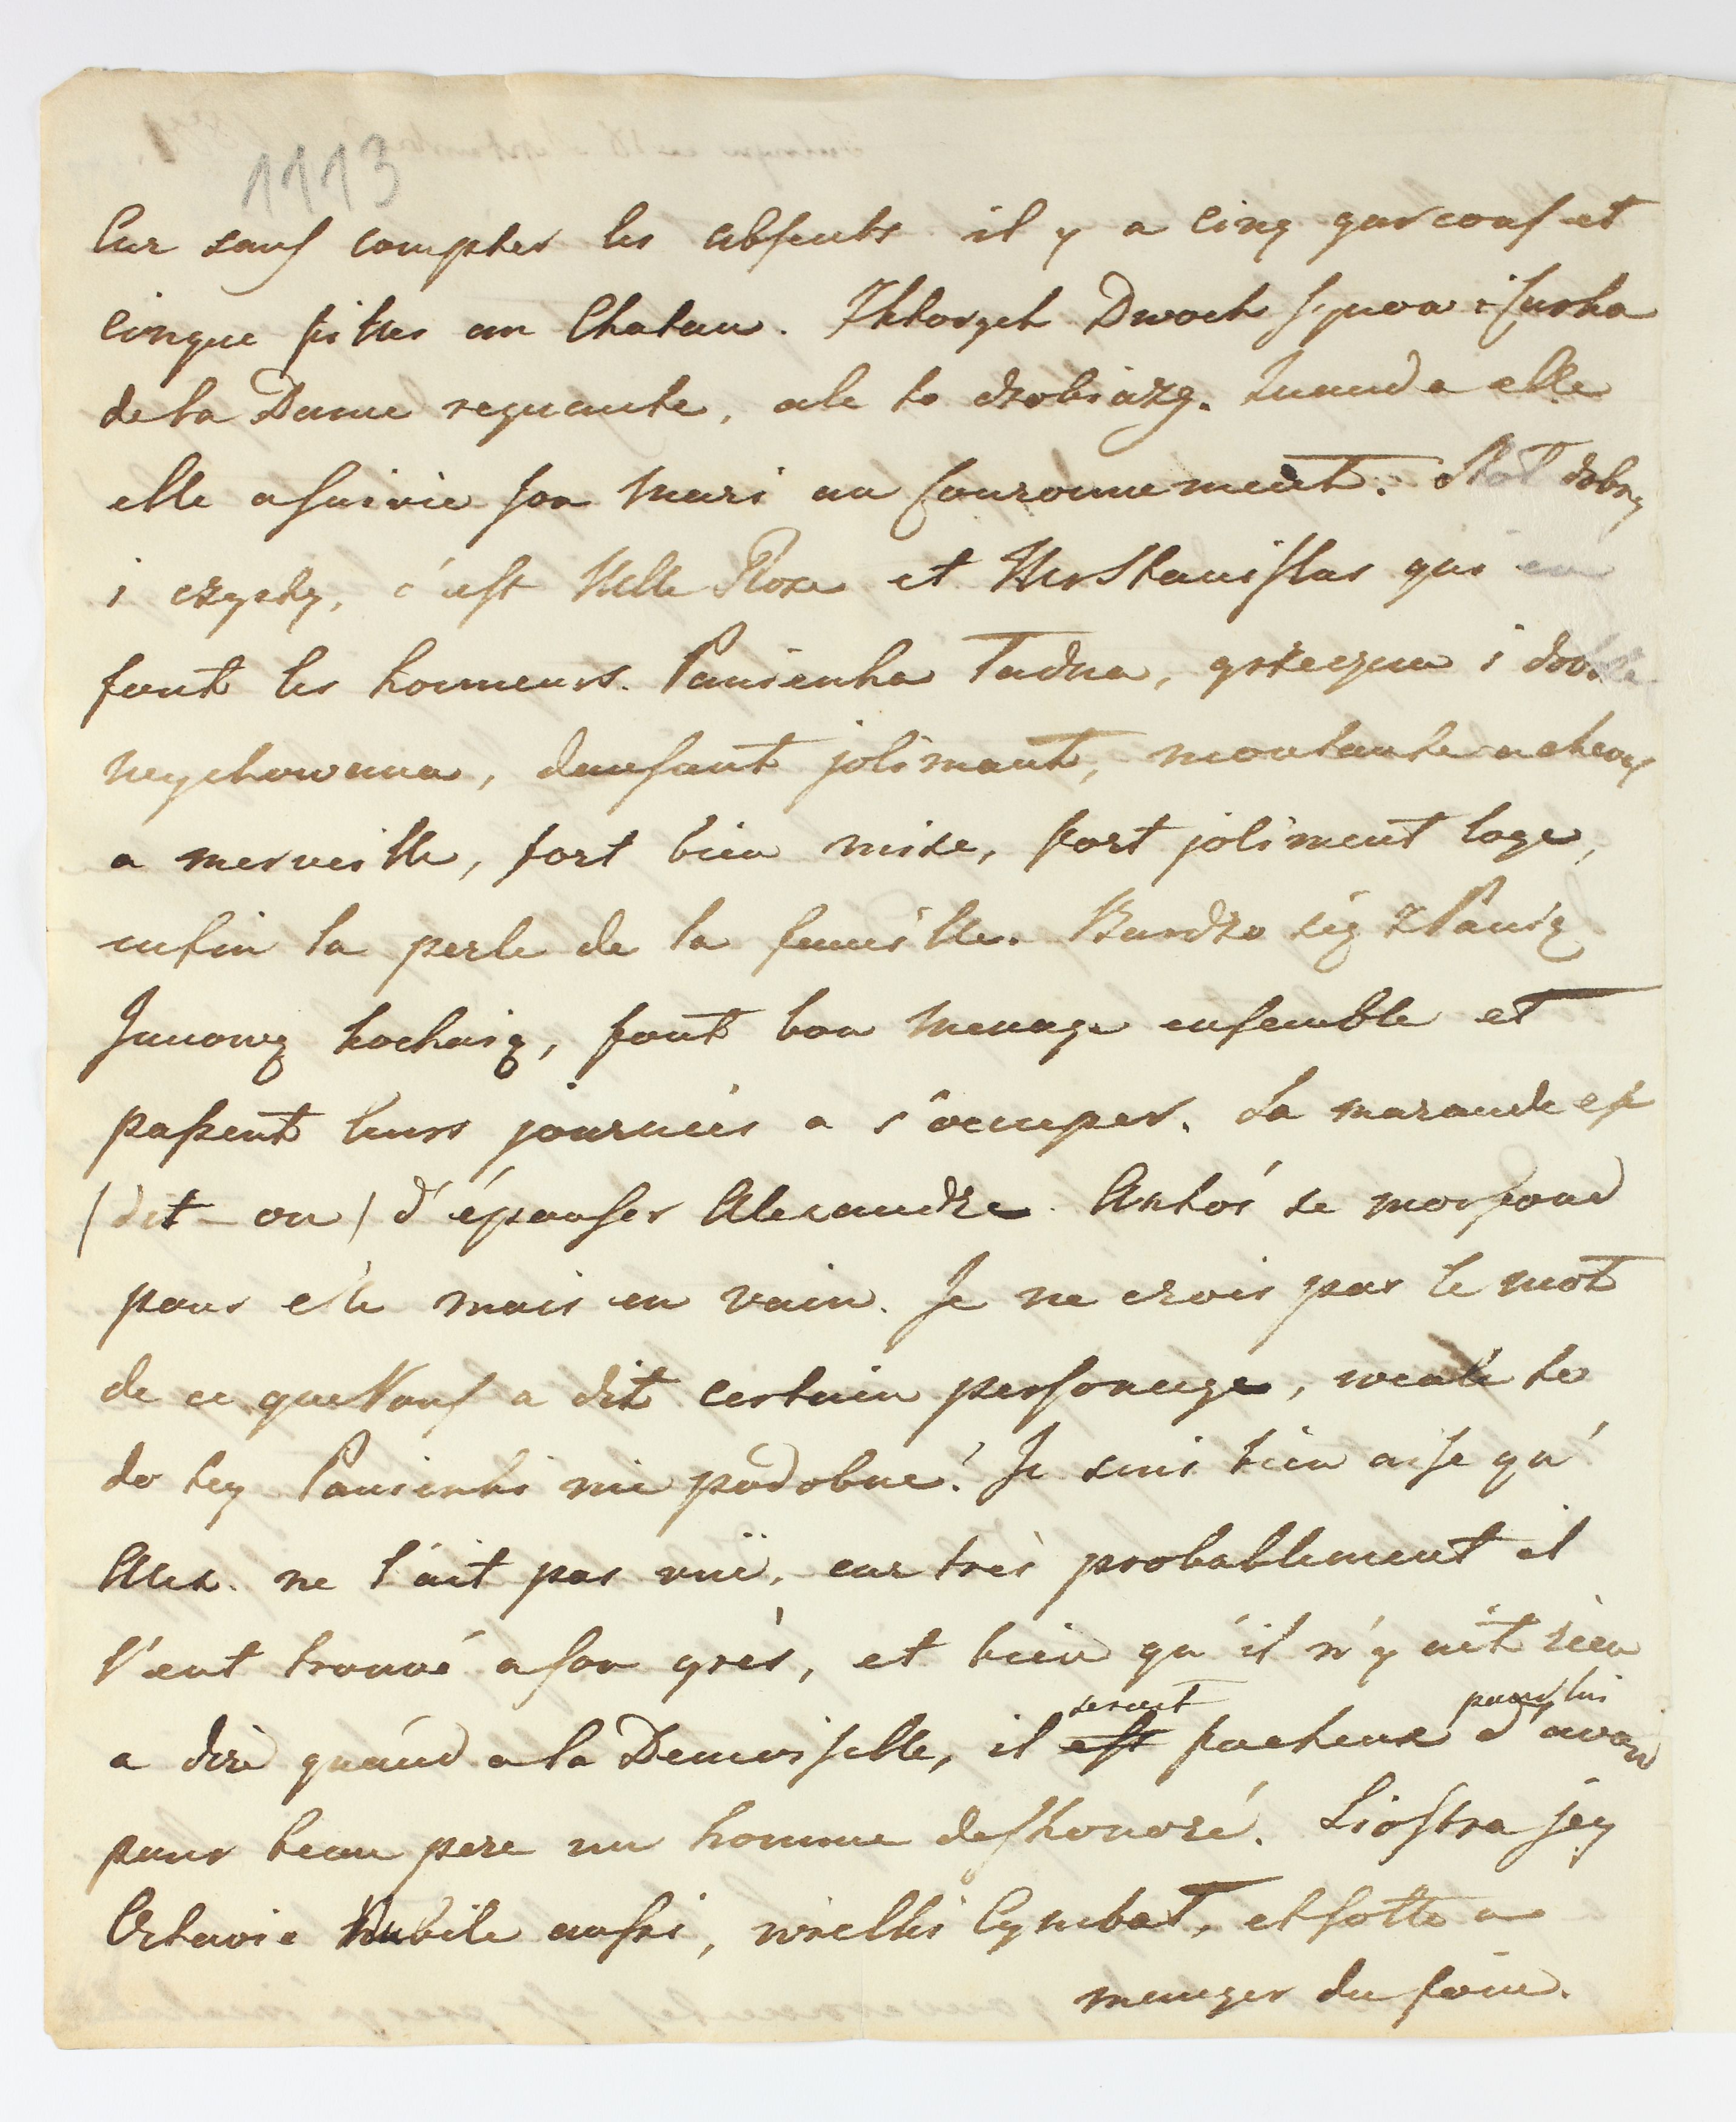 1113
Car sans compter les absents il y a cinq garconset
cinque filles au Chatau. Z ktorych Dwoch synow i Curka
de la Dame regnante, ale to drobiazg. quand a elle
elle a suivie son Mari au Couronnement. Stol dobry
i czysty, c'est Melle Rose et Mr Stanislas qui en
font les honneurs. Panienka Ładna, grzeczna i dobrze
wychowana, dansant joliment, montante a cheval
a merveille, fort bien mise, fort joliment loge,
enfin la perle de la famille. Bardzo się z Panią
Janową kochaią, font bon menage ensemble et
passent leurs journées a s'ocuper. La maraude est
(dit-on) d'épouser Alexandre. Antoś se morfond
pour elle mais en vain. Je ne crois pas le mot
de ce que Vous a dit certain personage, wcale to
do tey Panienki nie podobne! Je suis bien aise qu'
Alex. ne l'ait pas vüe, car très probablement il
l'eut trouvé a son grès, et bien qu'il n'y ait rien
a dire quand a la Demoiselle, il est serait facheux pour lui d'avoir
pour beau pere un homme deshonoré. Siostra jey
Octavie Nubile aussi, wielki Cymbał, et sotte a
manger du foin.